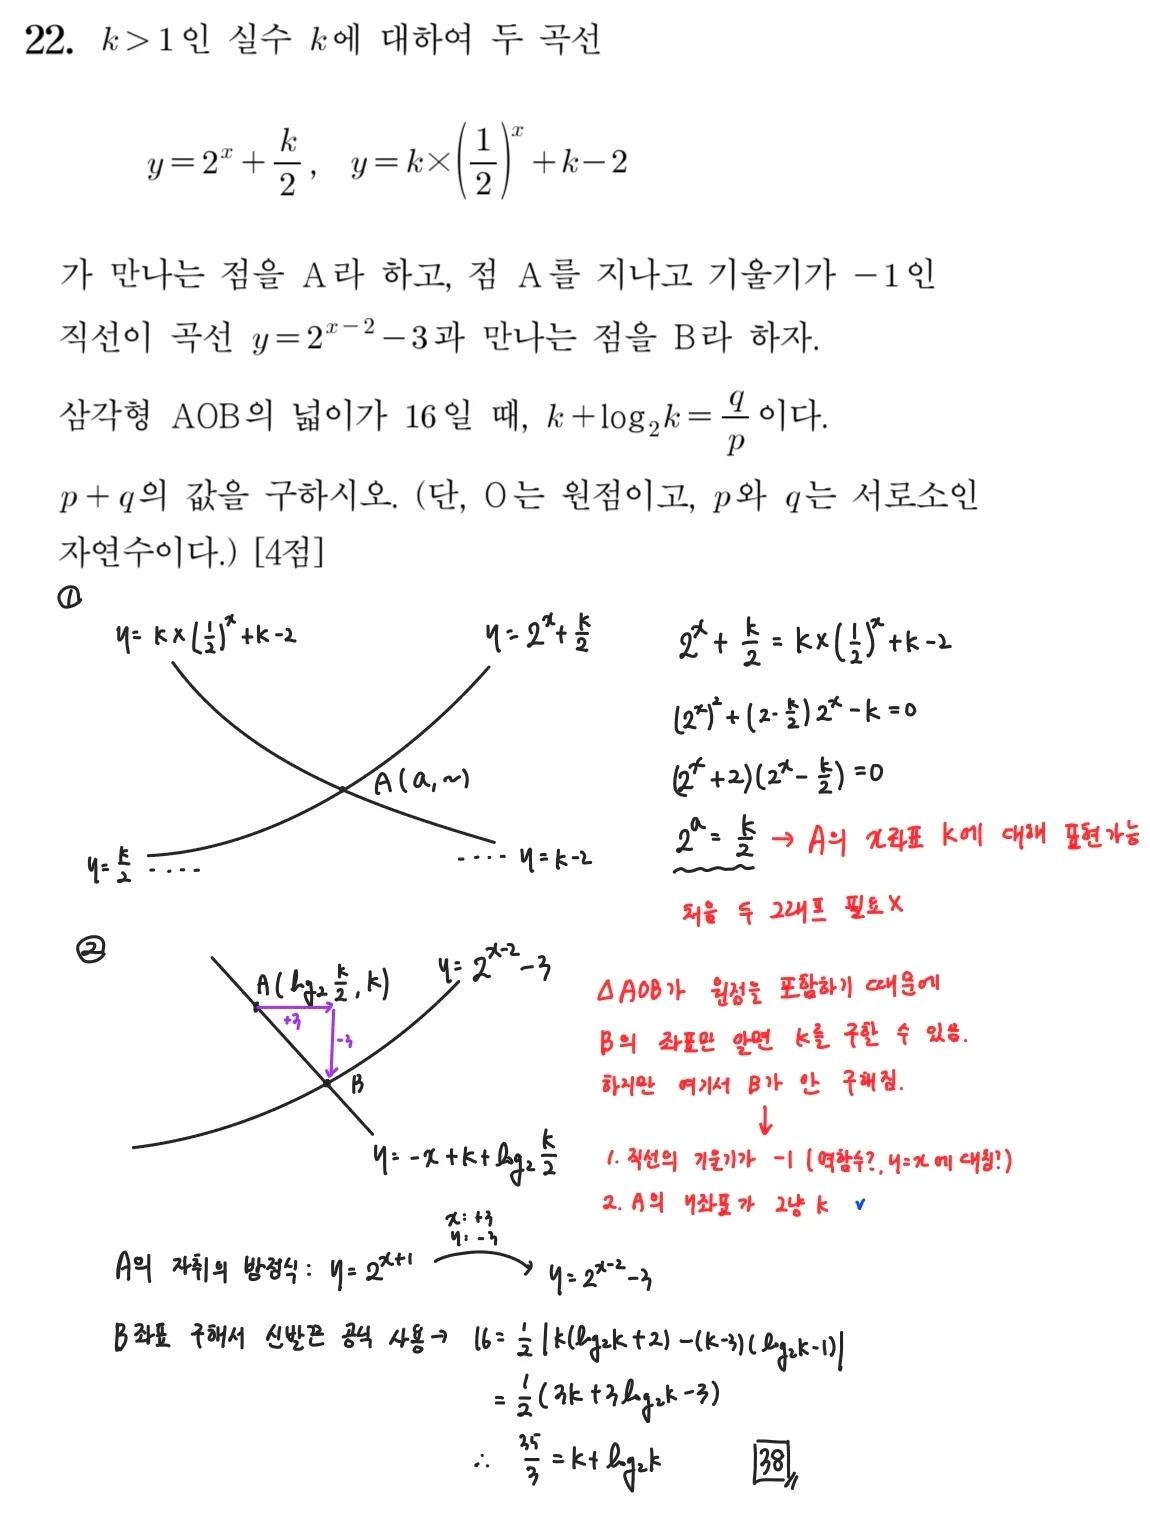 22. k>1인 실수 k에 대하여 두 곡선
y=2^x+k/2, y=k×(1/2)^x+k-2
가 만나는 점을 A라 하고, 점 A를 지나고 기울기가 -1인
직선이 곡선 y=2^{x-2}-3과 만나는 점을 B라 하자.
삼각형 AOB의 넓이가 16일 때, k+log₂k=q/p이다.
p+q의 값을 구하시오. (단, O는 원점이고, p와 q는 서로소인
자연수이다.) [4점]
①
y= k×(1/2)^x+k-2
y=2^x+k/2
A(a,~)
y=k/2 ····
···· y=k-2
2^x+k/2=k×(1/2)^x+k-2
(2^x)²+(2-k/2)2^x-k=0
(2^x+2)(2^x-k/2)=0
2^a=k/2 → A의 x좌표 k에 대해 표현가능
처음 두 그래프 필요X
②
A(log₂k/2, k)
y=2^{x-2}-3
+3
-3
B
y=-x+k+log₂k/2
△AOB가 원점을 포함하기 때문에
B의 좌표만 알면 k를 구할 수 있음.
하지만 여기서 B가 안 구해짐.
↓
1. 직선의 기울기가 -1 (역함수?, y=x에 대칭?)
2. A의 y좌표가 그냥 k ✓
A의 자취의 방정식: y=2^{x+1}
x: +3
y: -3
y=2^{x-2}-3
B좌표 구해서 신발끈 공식 사용→ 16=1/2|k(log₂k+2)-(k-3)(log₂k-1)|
=1/2(3k+3log₂k-3)
∴ 35/3=k+log₂k
38